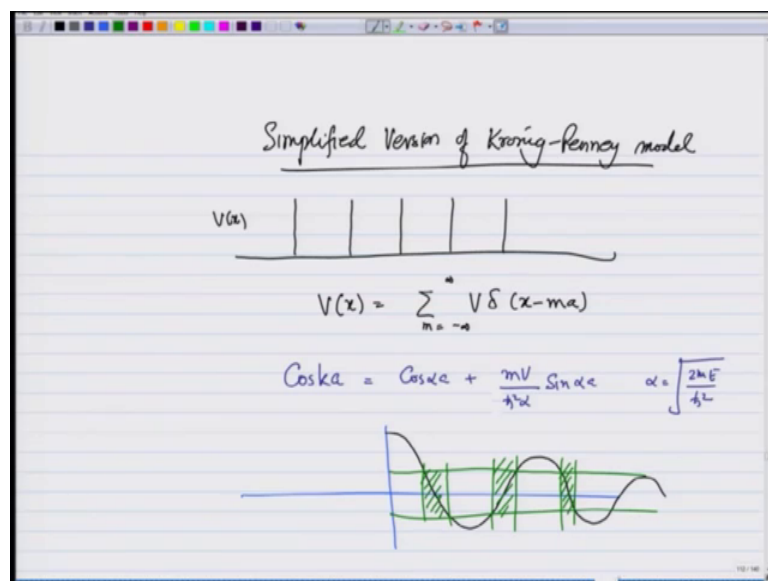 Simplified Version of Kronig-Penney model
V(x)
V(x) = ∑ m = -∞ ∞ V δ (x-ma)
Coska = Cosαa + mV/ħ²α Sinαa α = √(2mE/ħ²)